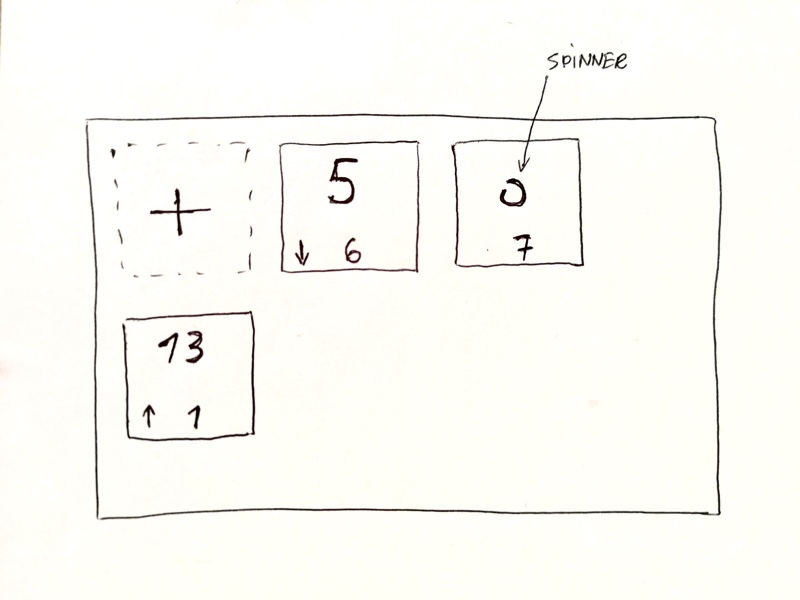 SPINNER
+
5
↓ 6
7
13
↑ 1